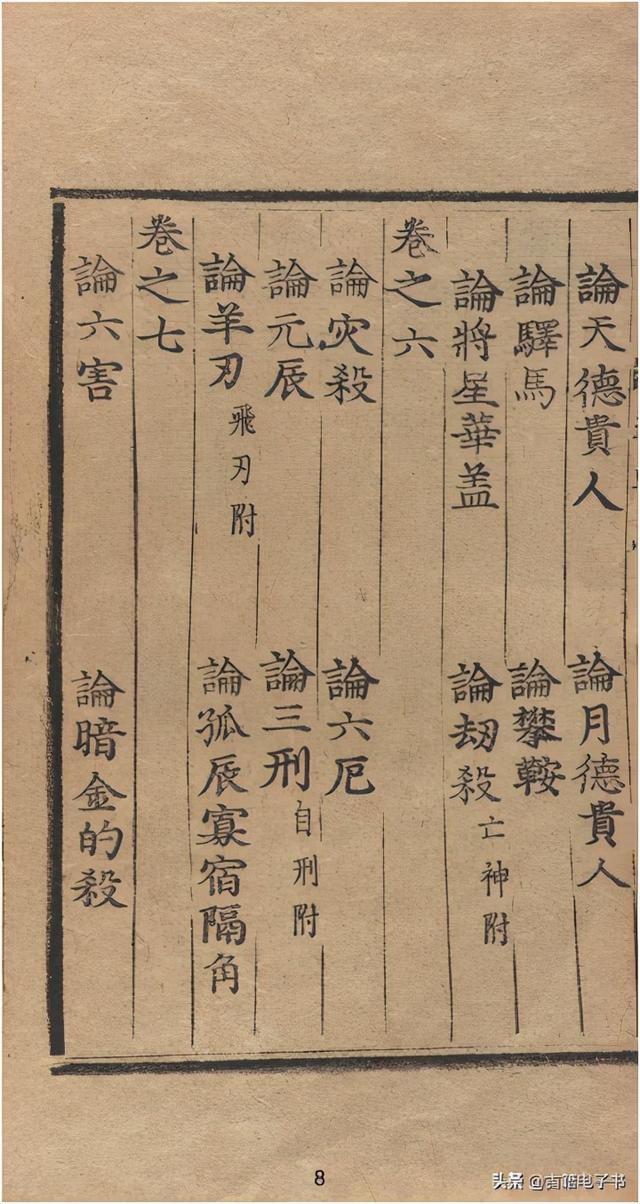 論天德貴人　論月德貴人
論驛馬　論攀鞍
論將星華盖　論刼殺亡神附
卷之六
論灾殺　論六厄
論元辰　論三刑自刑附
論羊刃飛刃附　論孤辰寡宿隔角
卷之七
論六害　論暗金的殺
8
头条 @古僧电子书